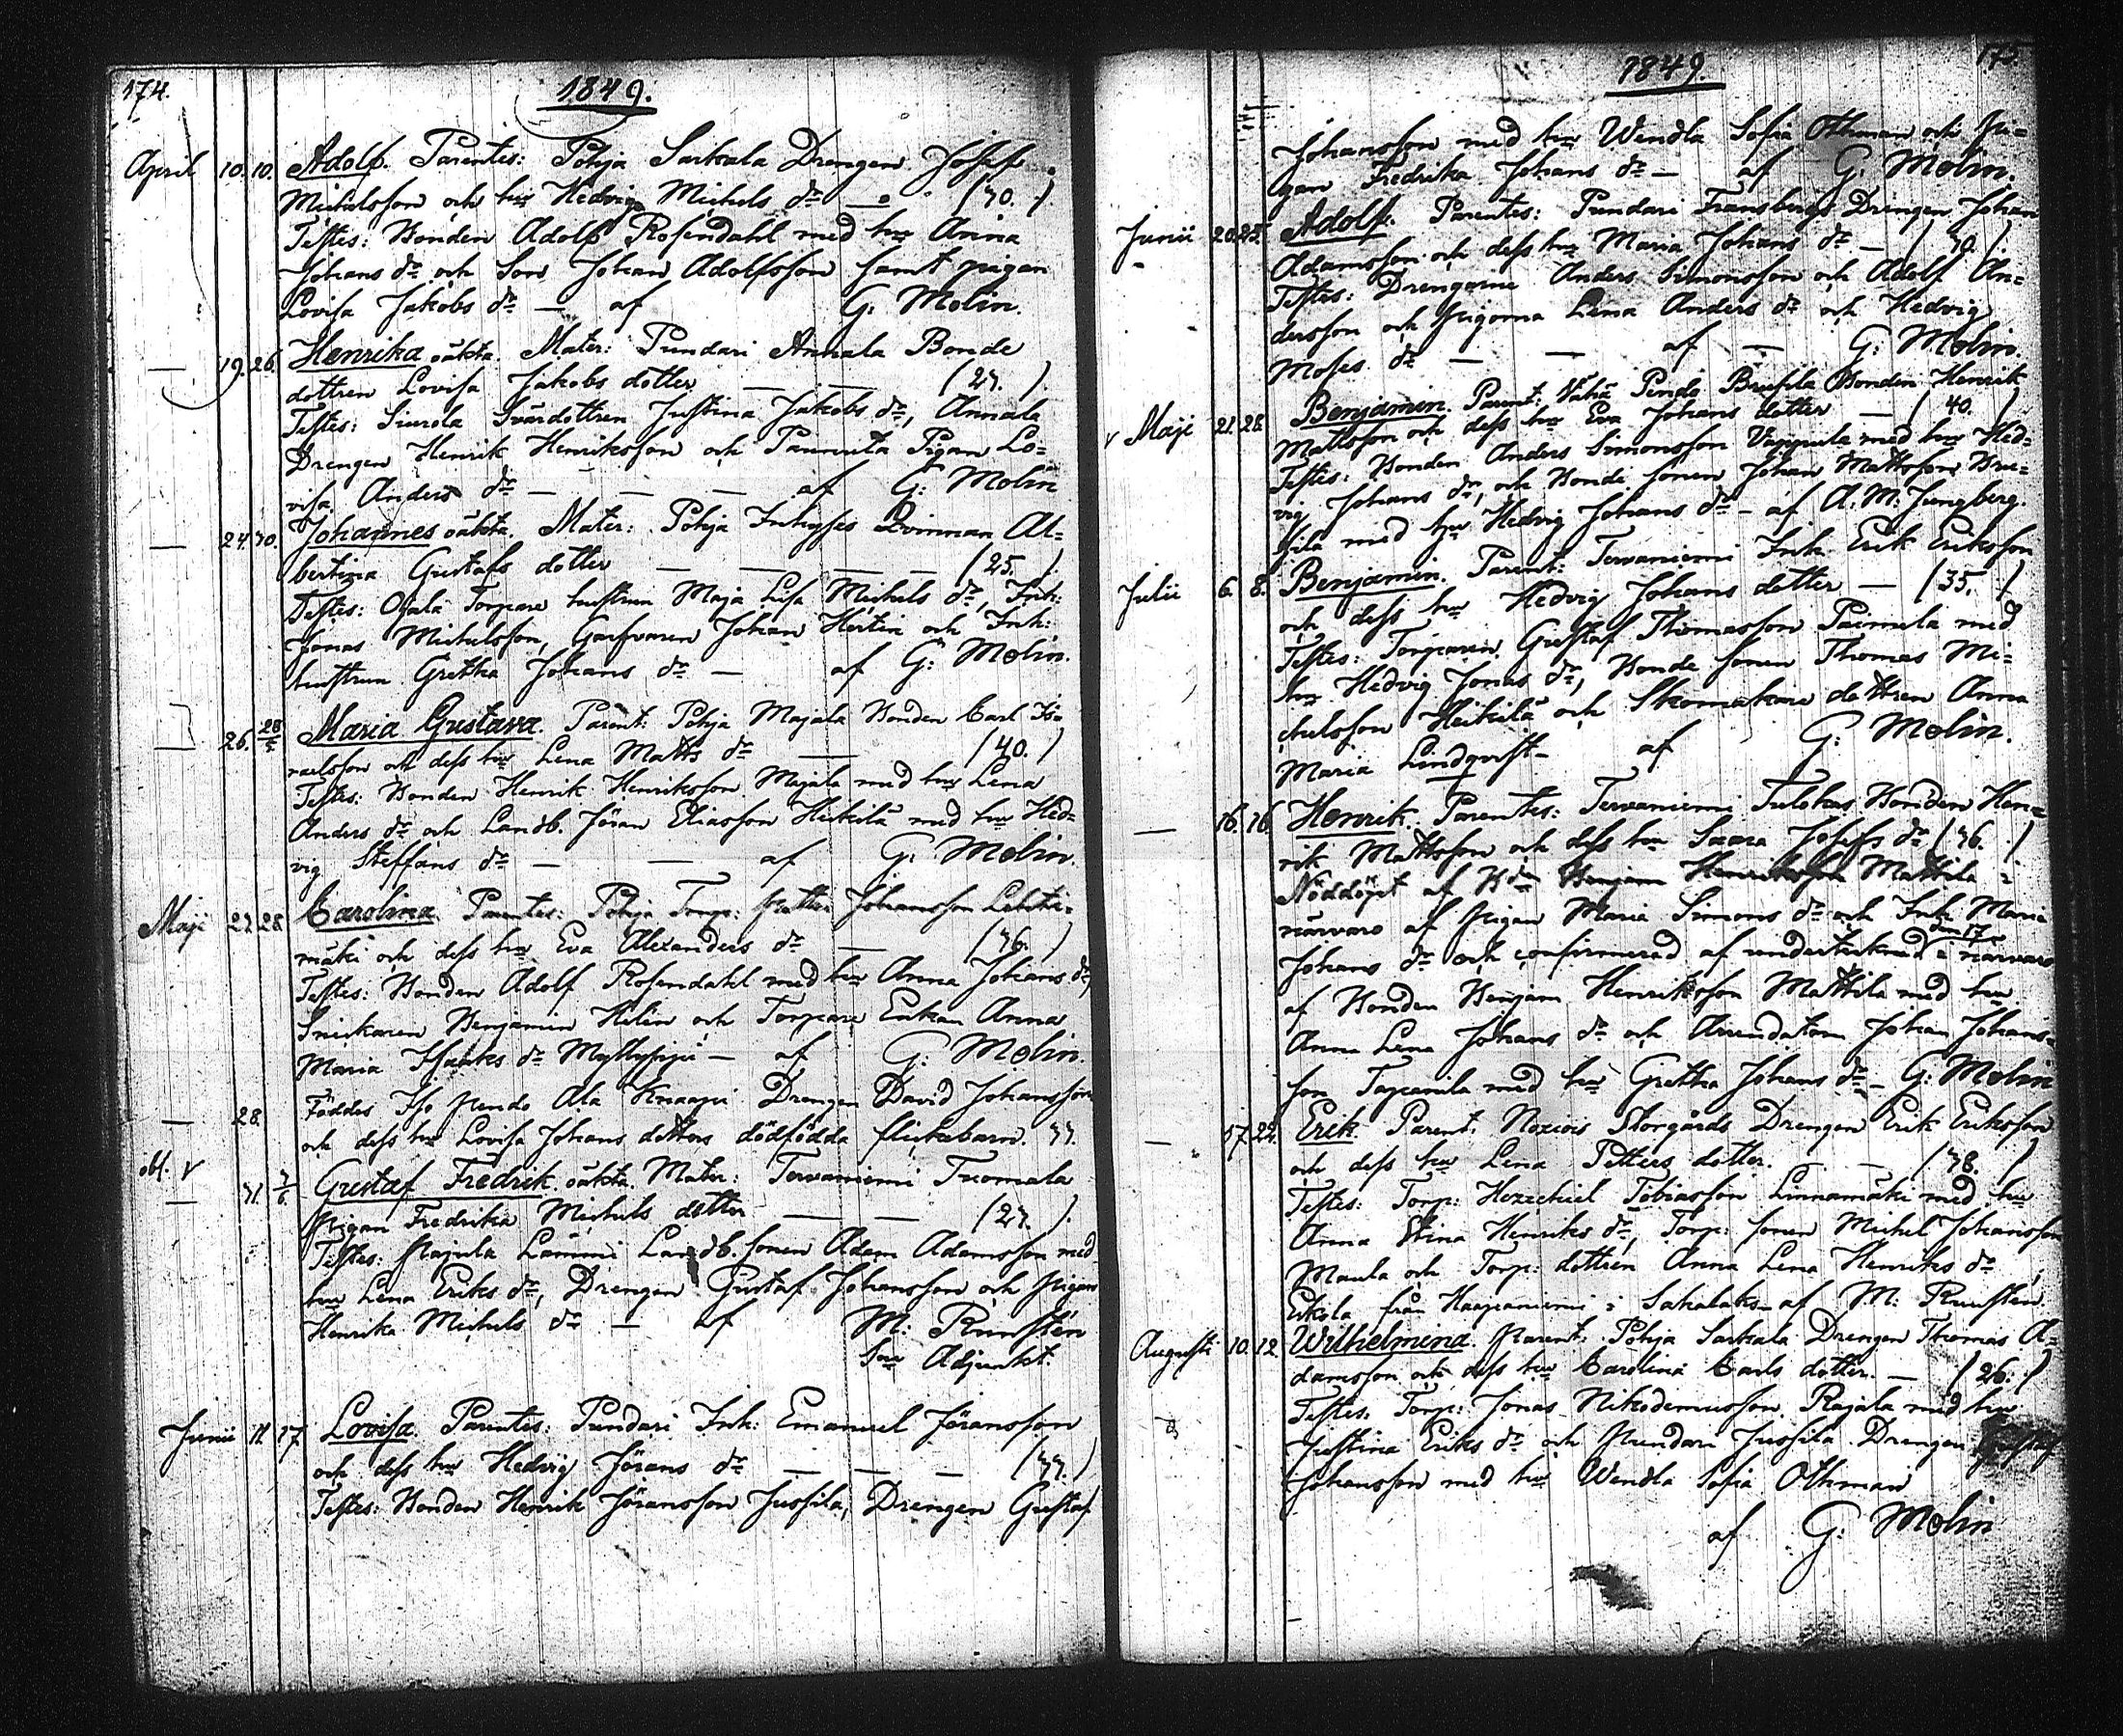 174.
1849.
April 10. 10. Adolf. Parentes: Pohja Sarkala Drengen Josef
Michelsson och hru Hedvig Michels dr — (30.)
Testes: Bonden Adolf Rosendahl med hru Anna
Johans dr och Son Johan Adolfsson samt pigan
Lovisa Jakobs dr — af G: Molin.
— 19. 26. Henrika oäkta. Mater: Pundari Annala Bonde
dottren Lovisa Jakobs dotter — — (23.)
Testes: Simola Svärdottren Justina Jakobs dr, Annala
Drengen Henrik Henriksson och Pigan Lo=
visa Anders dr — — — af G: Molin
— 24. 30. Johannes oäkta. Mater: Pohja Inhyses Qvinnan Al=
bertina Gustafs dotter — — — — (25.)
Testes: Ojala Torpare hustrun Maja Lisa Michels dr, Inh:
Jonas Michelsson, Garfvaren Johan Hertin och Inh:
hustrun Gretha Johans dr — af G: Molin.
— 26. 28/5 Maria Gustava. Parent: Pohja Majala Bonden Carl Is=
raelsson och dess hru Lena Matts dr — (40.)
Testes: Bonden Henrik Henriksson Majala med hru Lena
Anders dr och Landb. Jöran Eliasson Heikilä med hru Hed=
vig Steffans dr — — af G: Molin.
Maji 23. 28. Carolina. Parentes: Pohja Torp: Petter Johansson Lehti=
mäki och dess hru Eva Alexanders dr — (36.)
Testes: Bonden Adolf Rosendahl med hru Anna Johans dr,
Snickaren Benjamin Helin och Torpare Enkan Anna
Maria Isaaks dr Myllysija — af G: Molin.
— 28. Föddes Iso Pendo Ala Knaapi Drengen David Johansson
och dess hru Lovisa Johans dotters dödfödda flickebarn. 33.
obl. v
— 31. 3/6 Gustaf Fredrik oäkta. Mater: Tervaniemi Tuomala
Pigan Fredrika Michels dotter — — (23.)
Testes: Pajula Lammi Landb. sonen Adam Adamsson med
hru Lena Eriks dr, Drengen Gustaf Johansson och Pigan
Henrika Michels dr — af M: Runsten
Adjunkt.
Junii 11. 17. Lovisa. Parentes: Pundari Inh: Emanuel Jöransson
och dess hru Hedvig Jörans dr — — — (33.)
Testes: Bonden Henrik Jöransson Jussila, Drengen Gustaf
175
1849.
Johansson med hru Wendla Sofia Othman och Pi=
gan Fredrika Johans dr — af G: Molin.
Junii 20. 25. Adolf. Parentes: Pundari Fransbergs Drengen Johan
Adamsson och dess hru Maria Johans dr — (30.)
Testes: Drengarne Anders Simonsson och Adolf An=
dersson och Pigorna Lena Anders dr och Hedvig
Moses dr — — af — G: Molin.
v Maji 21. 28. Benjamin. Parent: Vähä Pendo Brusila Bonden Henrik
Mattsson och dess hru Eva Johans dotter — (40.)
Testes: Bonden Anders Simonsson Vappula med hru Hed=
vig Johans dr, och Bonde sonen Johan Mattsson Bru=
sila med hru Hedvig Johans dr — af A. M: Jungberg.
Julii 6. 8. Benjamin. Parent: Tervaniemi Inh. Erik Eriksson
och dess hru Hedvig Johans dotter — (35.)
Testes: Torparen Gustaf Thomasson Paimela med
hru Hedvig Jonas dr, Bonde sonen Thomas Mi=
chelsson Heikilä och Skomakare dottren Anna
Maria Lindqvist — af G: Molin.
— 16. 16. Henrik. Parentes: Tervaniemi Tulokas Bonden Hen=
rik Mattsson och dess hru Saara Josefs dr (36.)
Nöddöpt af Bdn Benjam Henriksson Mattila i
närvaro af Pigan Maria Simons dr och Inh: Maria
Johans dr och confirmerad af undertecknad den 17 i närvaro
af Bonden Benjam Henriksson Mattila med hru
Anna Lena Johans dr och Arrendatorn Johan Johans=
son Tapanila med hru Gretha Johans dr — G: Molin
— 17. 22. Erik. Parent: Noxiois Storgårds Drengen Erik Eriksson
och dess hru Lena Petters dotter. — — (38.)
Testes: Torp: Hezechiel Tobiasson Linnamäki med hru
Anna Stina Henriks dr, Torp: sonen Michel Johansson
Maula och Torp: dottren Anna Lena Henriks dr
Eskola från Haapaniemi i Sahalaks — af M: Runsten.
Augusti 10. 12. Wilhelmina. Parent: Pohja Sarkala Drengen Thomas A=
damsson och dess hru Carolina Carls dotter. — (26.)
Testes: Torp: Jonas Nikodemusson Rajala med hru
Justina Eriks dr och Pundari Jussila Drengen Gustaf
Johansson med hru Wendla Sofia Othman
af G: Molin